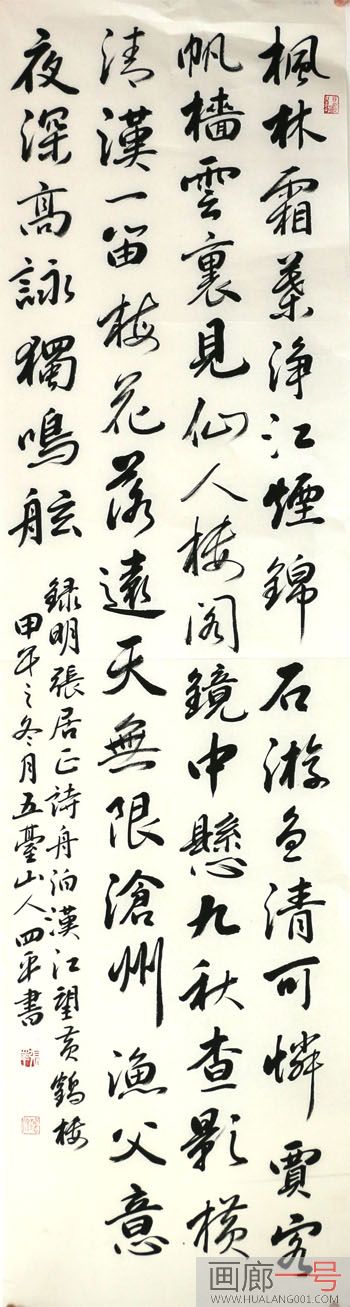 楓林霜葉淨江煙錦石游魚清可憐賈客
帆檣雲裏見仙人樓閣鏡中懸九秋查影橫
清漢一笛梅花落遠天無限滄州漁父意
夜深高詠獨鳴舷
録明張居正詩舟泊漢江望黃鶴樓
甲午之冬月五臺山人四平書
画廊一号
WWW.HUALANG001.COM